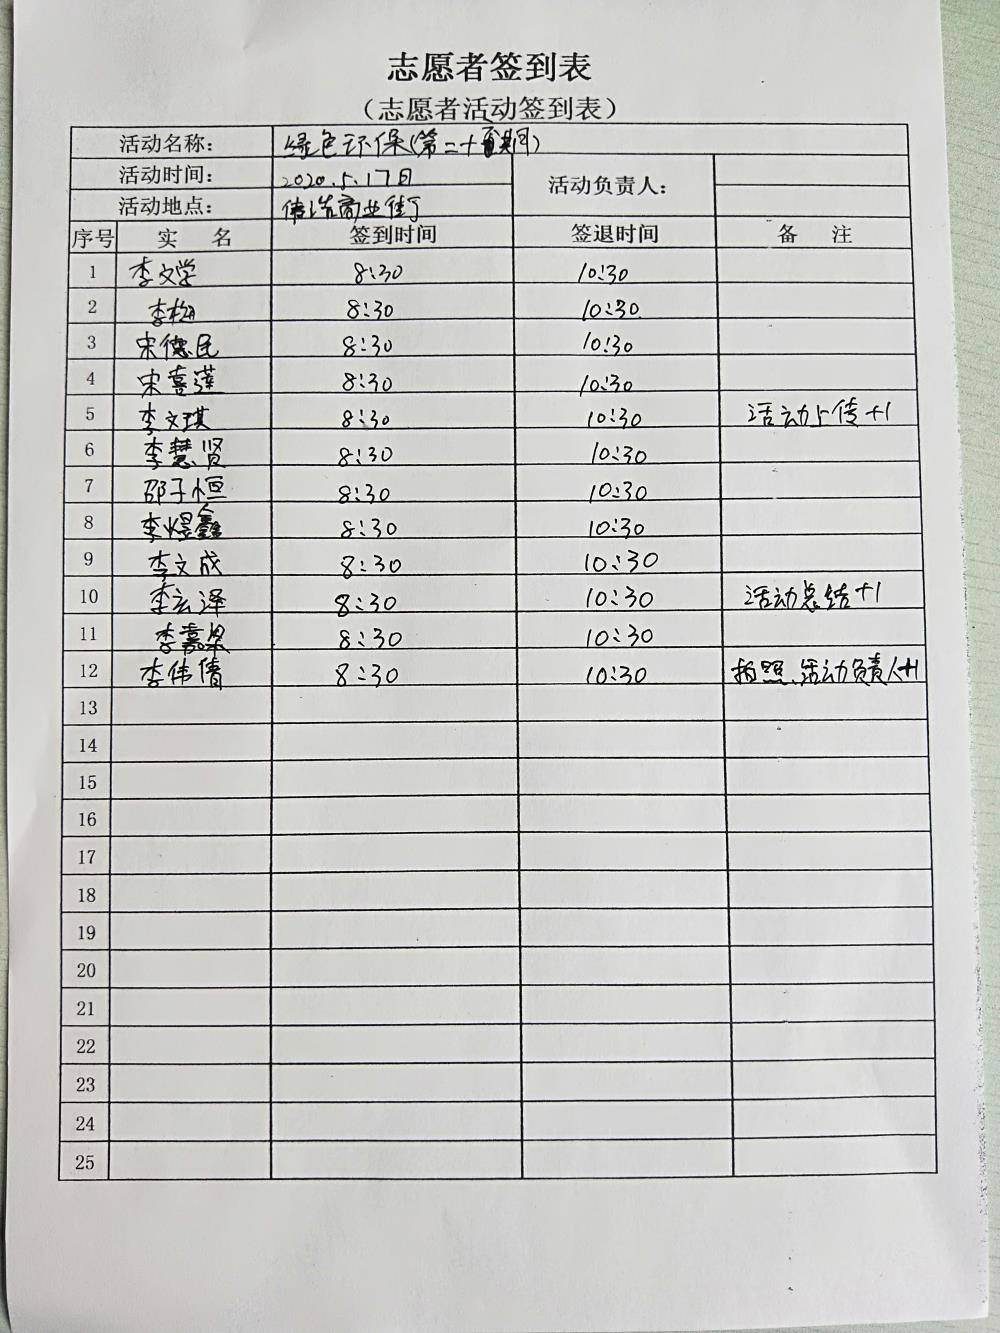 志愿者签到表
（志愿者活动签到表）
活动名称： 绿色环保(第二十期)
活动时间： 2020.5.17日 活动负责人：
活动地点： 商业街
序号 实 名 签到时间 签退时间 备 注
1 李文学 8:30 10:30
2 李梅 8:30 10:30
3 宋德民 8:30 10:30
4 宋喜莲 8:30 10:30
5 李文琪 8:30 10:30 活动上传+1
6 李慧贤 8:30 10:30
7 邵子恒 8:30 10:30
8 李煜鑫 8:30 10:30
9 李文成 8:30 10:30
10 李云泽 8:30 10:30 活动总结+1
11 李嘉梁 8:30 10:30
12 李伟倩 8:30 10:30 拍照、活动负责人+1
13
14
15
16
17
18
19
20
21
22
23
24
25